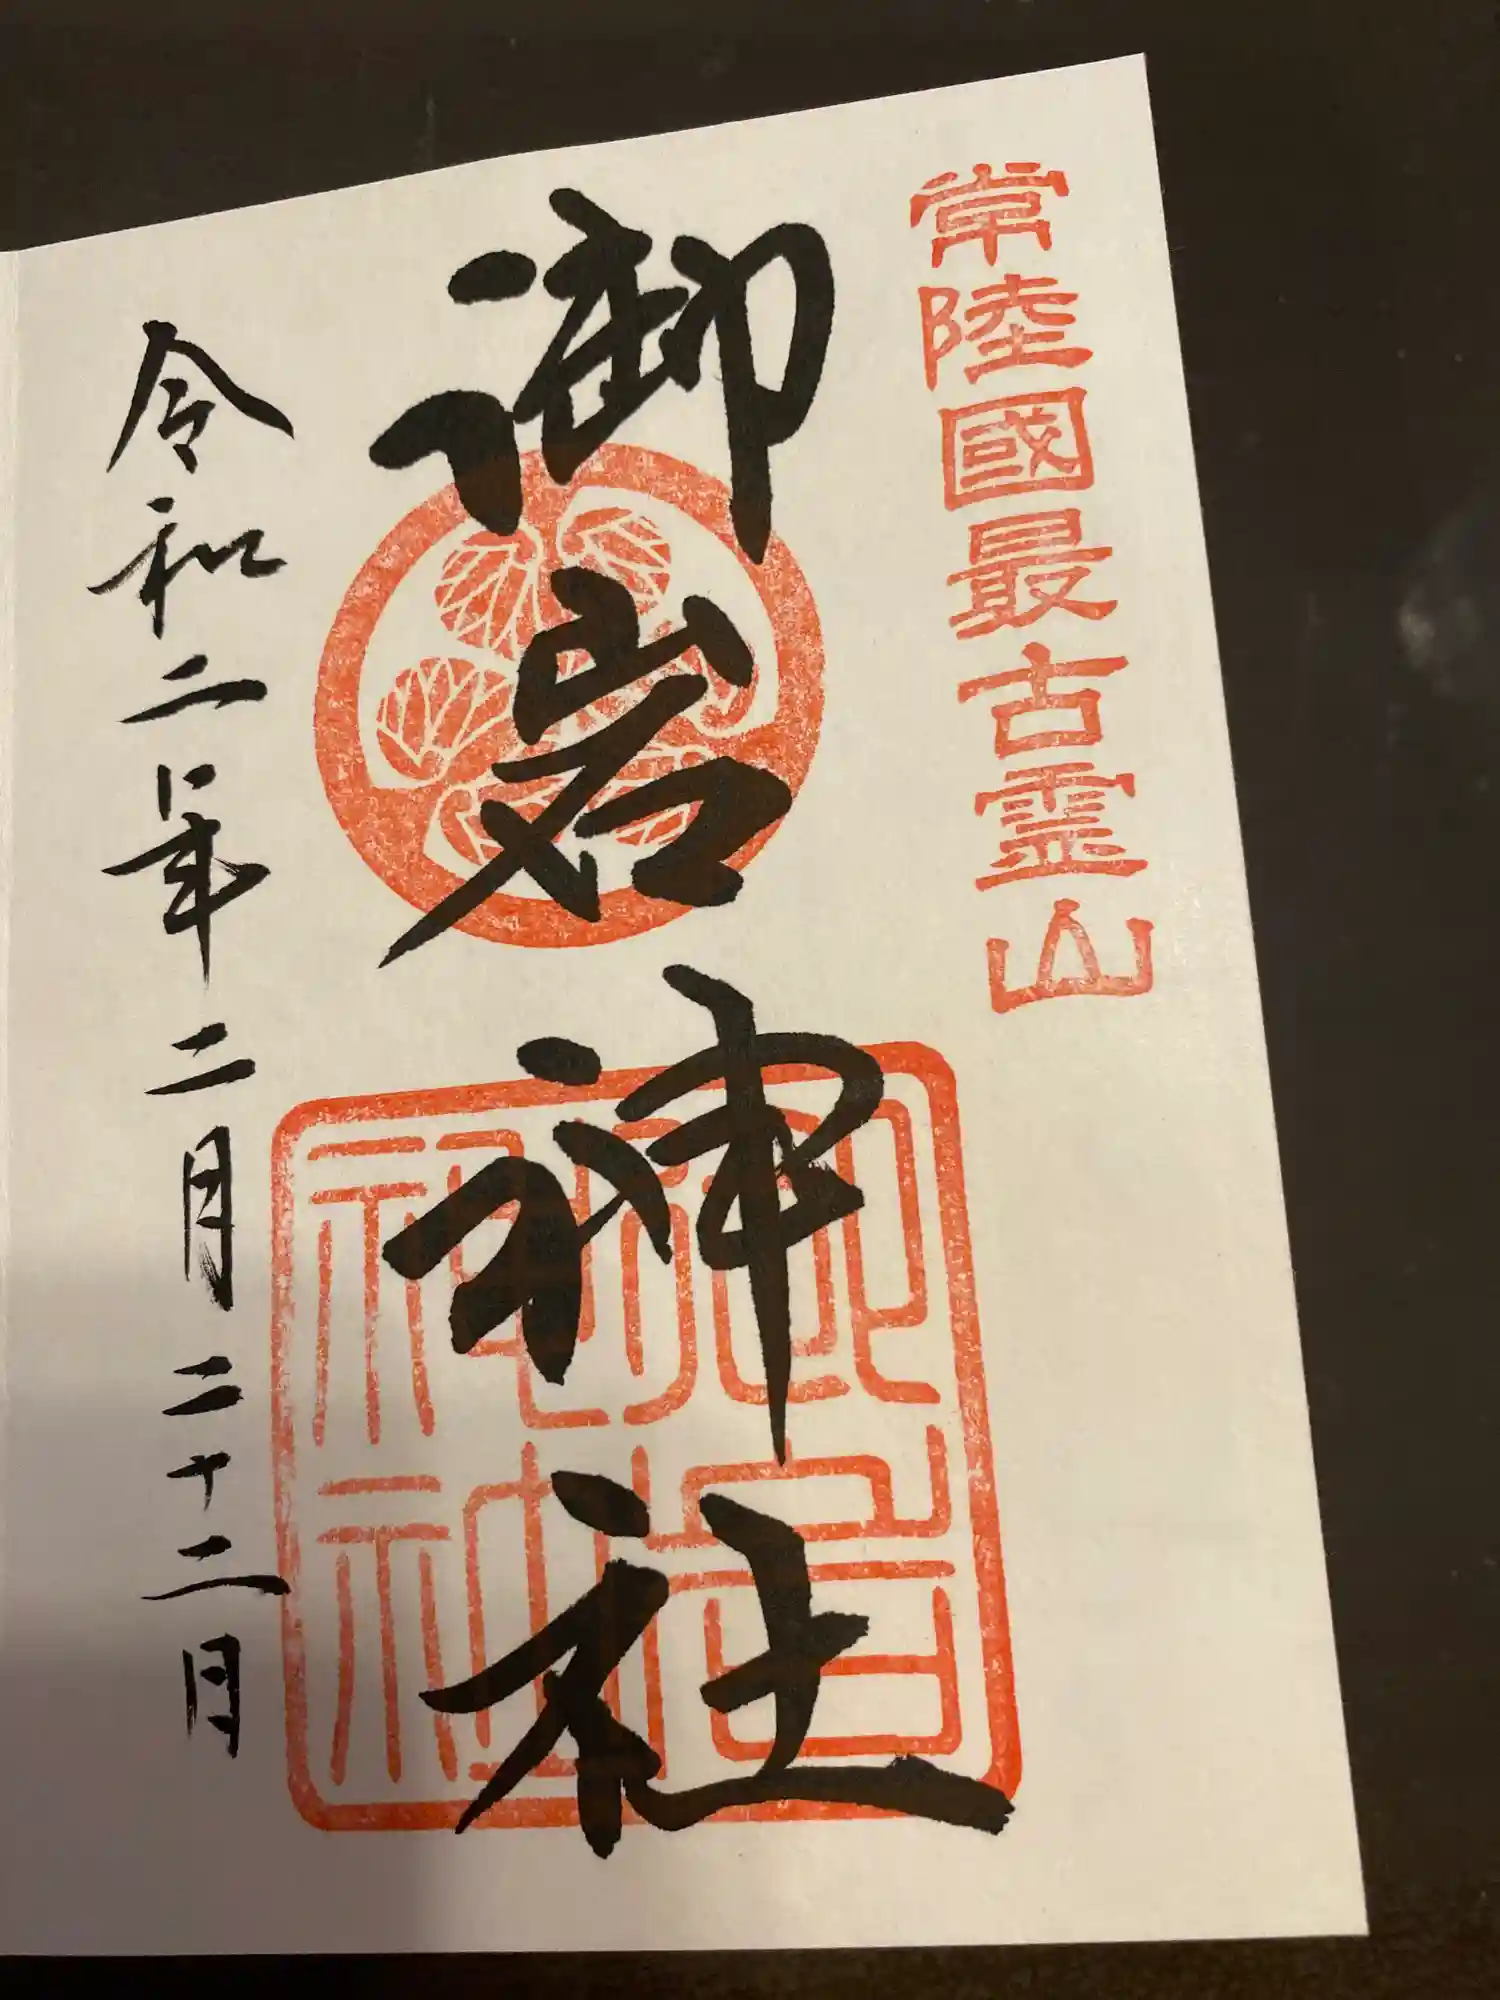 常陸國最古霊山
御岩神社
令和二年二月二十二日
御岩神社